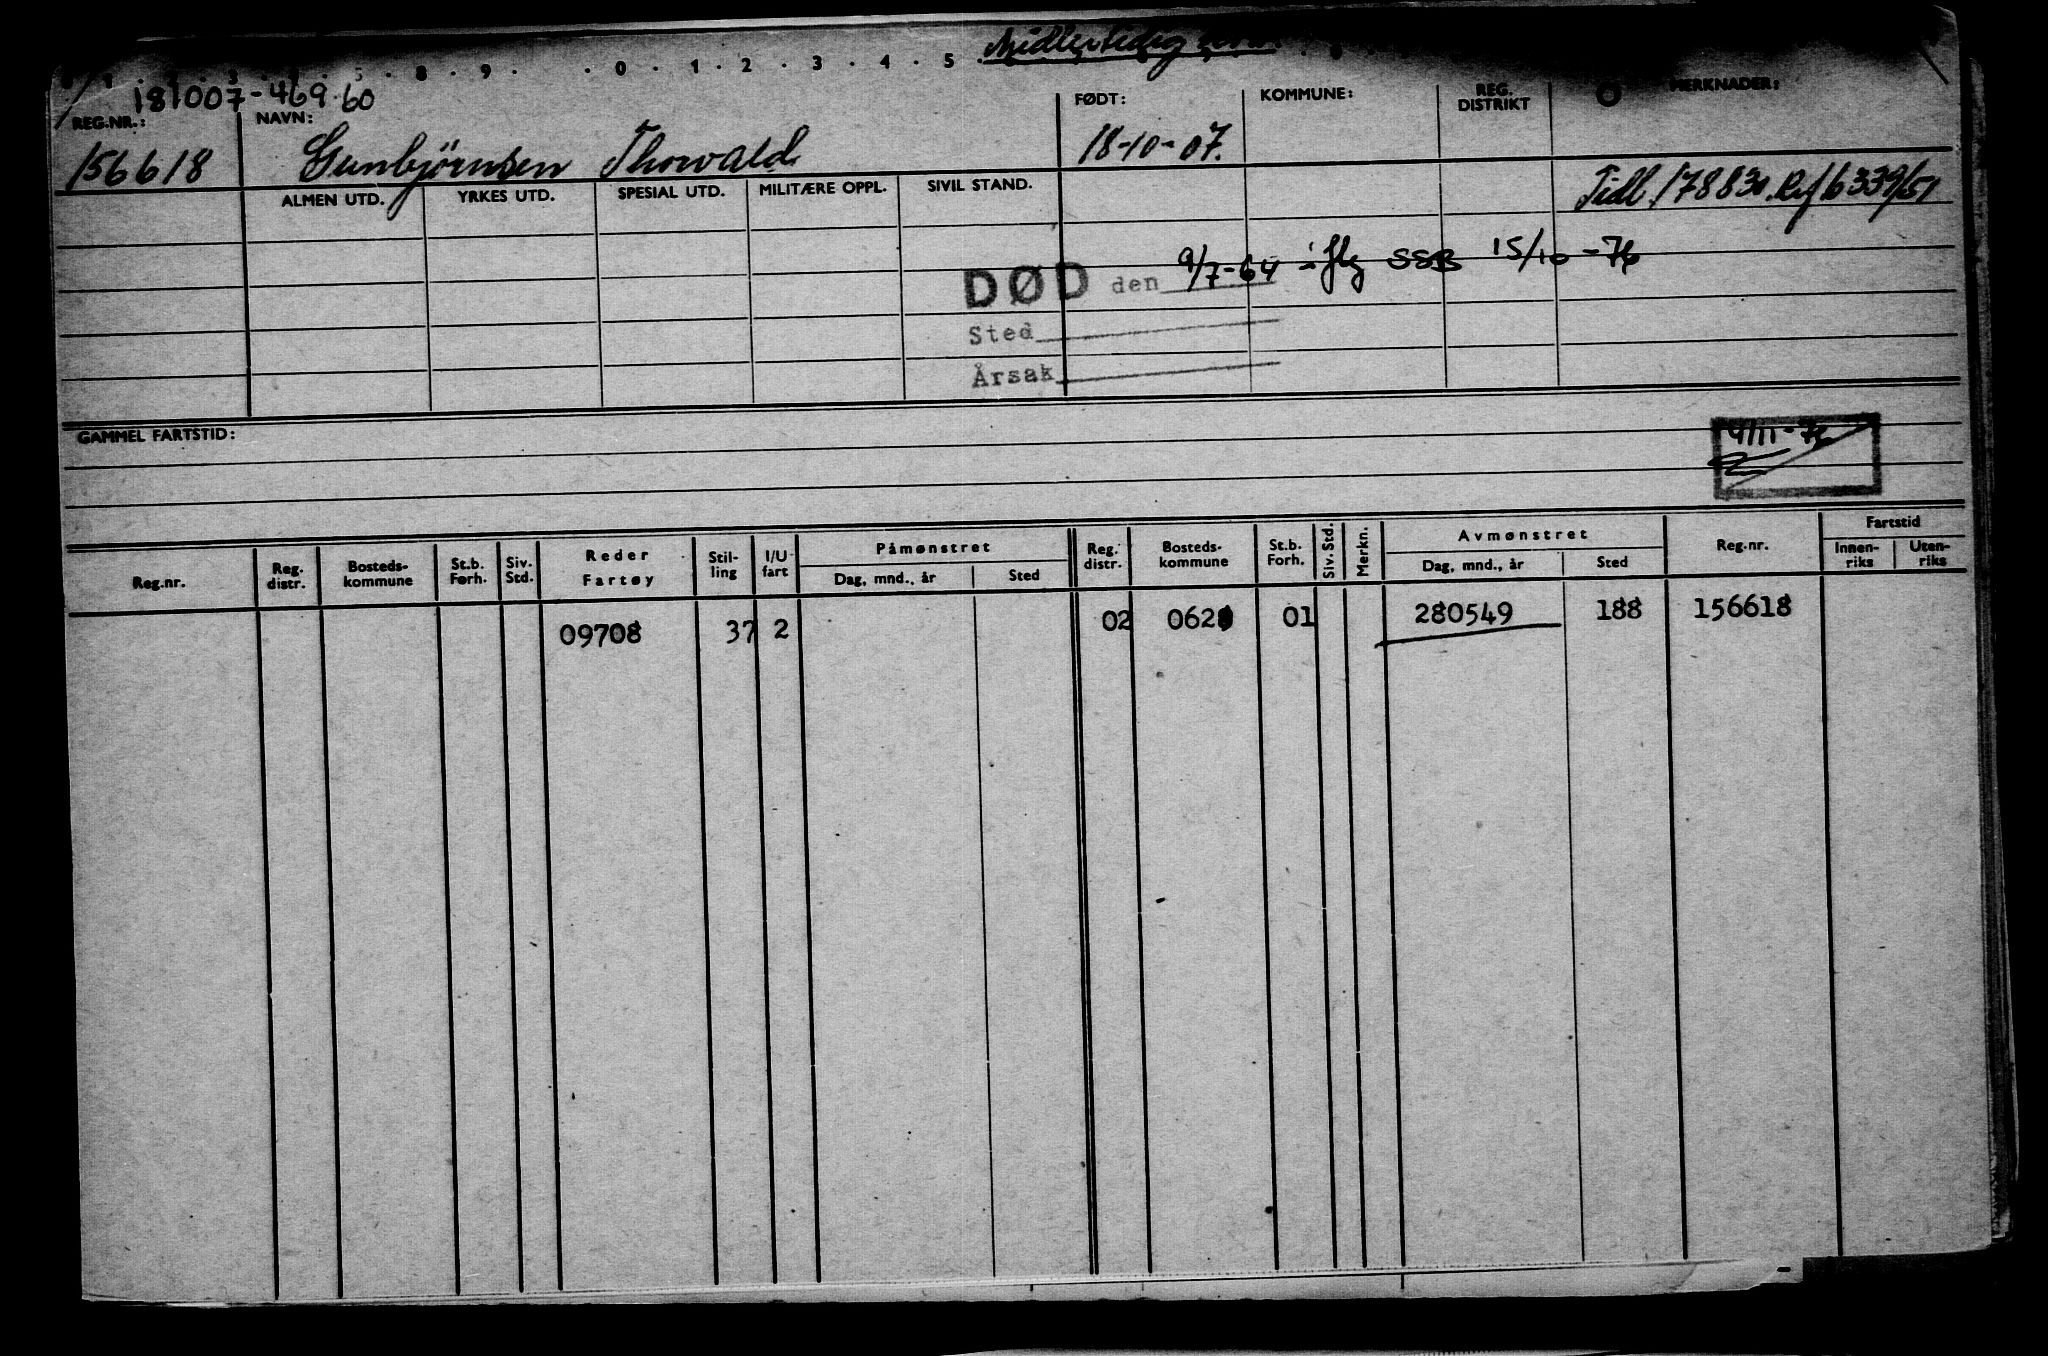 Midlertidig
0 . 1 . 2 . 3 . 4 . 5 .
181007-469.60
REG.NR.: NAVN: FØDT: KOMMUNE: REG. DISTRIKT MERKNADER:
156618 Gunbjørnsen Thorvald 18-10-07.
Tidl. 178830. Ref 6339/51
ALMEN UTD. YRKES UTD. SPESIAL UTD. MILITÆRE OPPL. SIVIL STAND.
DØD den 9/7-64 iflg SSB 15/10-76
Sted
Årsak
GAMMEL FARTSTID:
4/11-76
Reg.nr. Reg. distr. Bosteds-kommune St.b. Førh. Siv. Std. Reder Fartøy Stil-ling I/U fart Påmønstret Dag, mnd., år Sted Reg. distr. Bosteds-kommune St.b. Forh. Siv. Std. Merkn. Avmønstret Dag, mnd., år Sted Reg.nr. Fartstid Innen-riks Uten-riks
09708 37 2 02 01 280549 188 156618